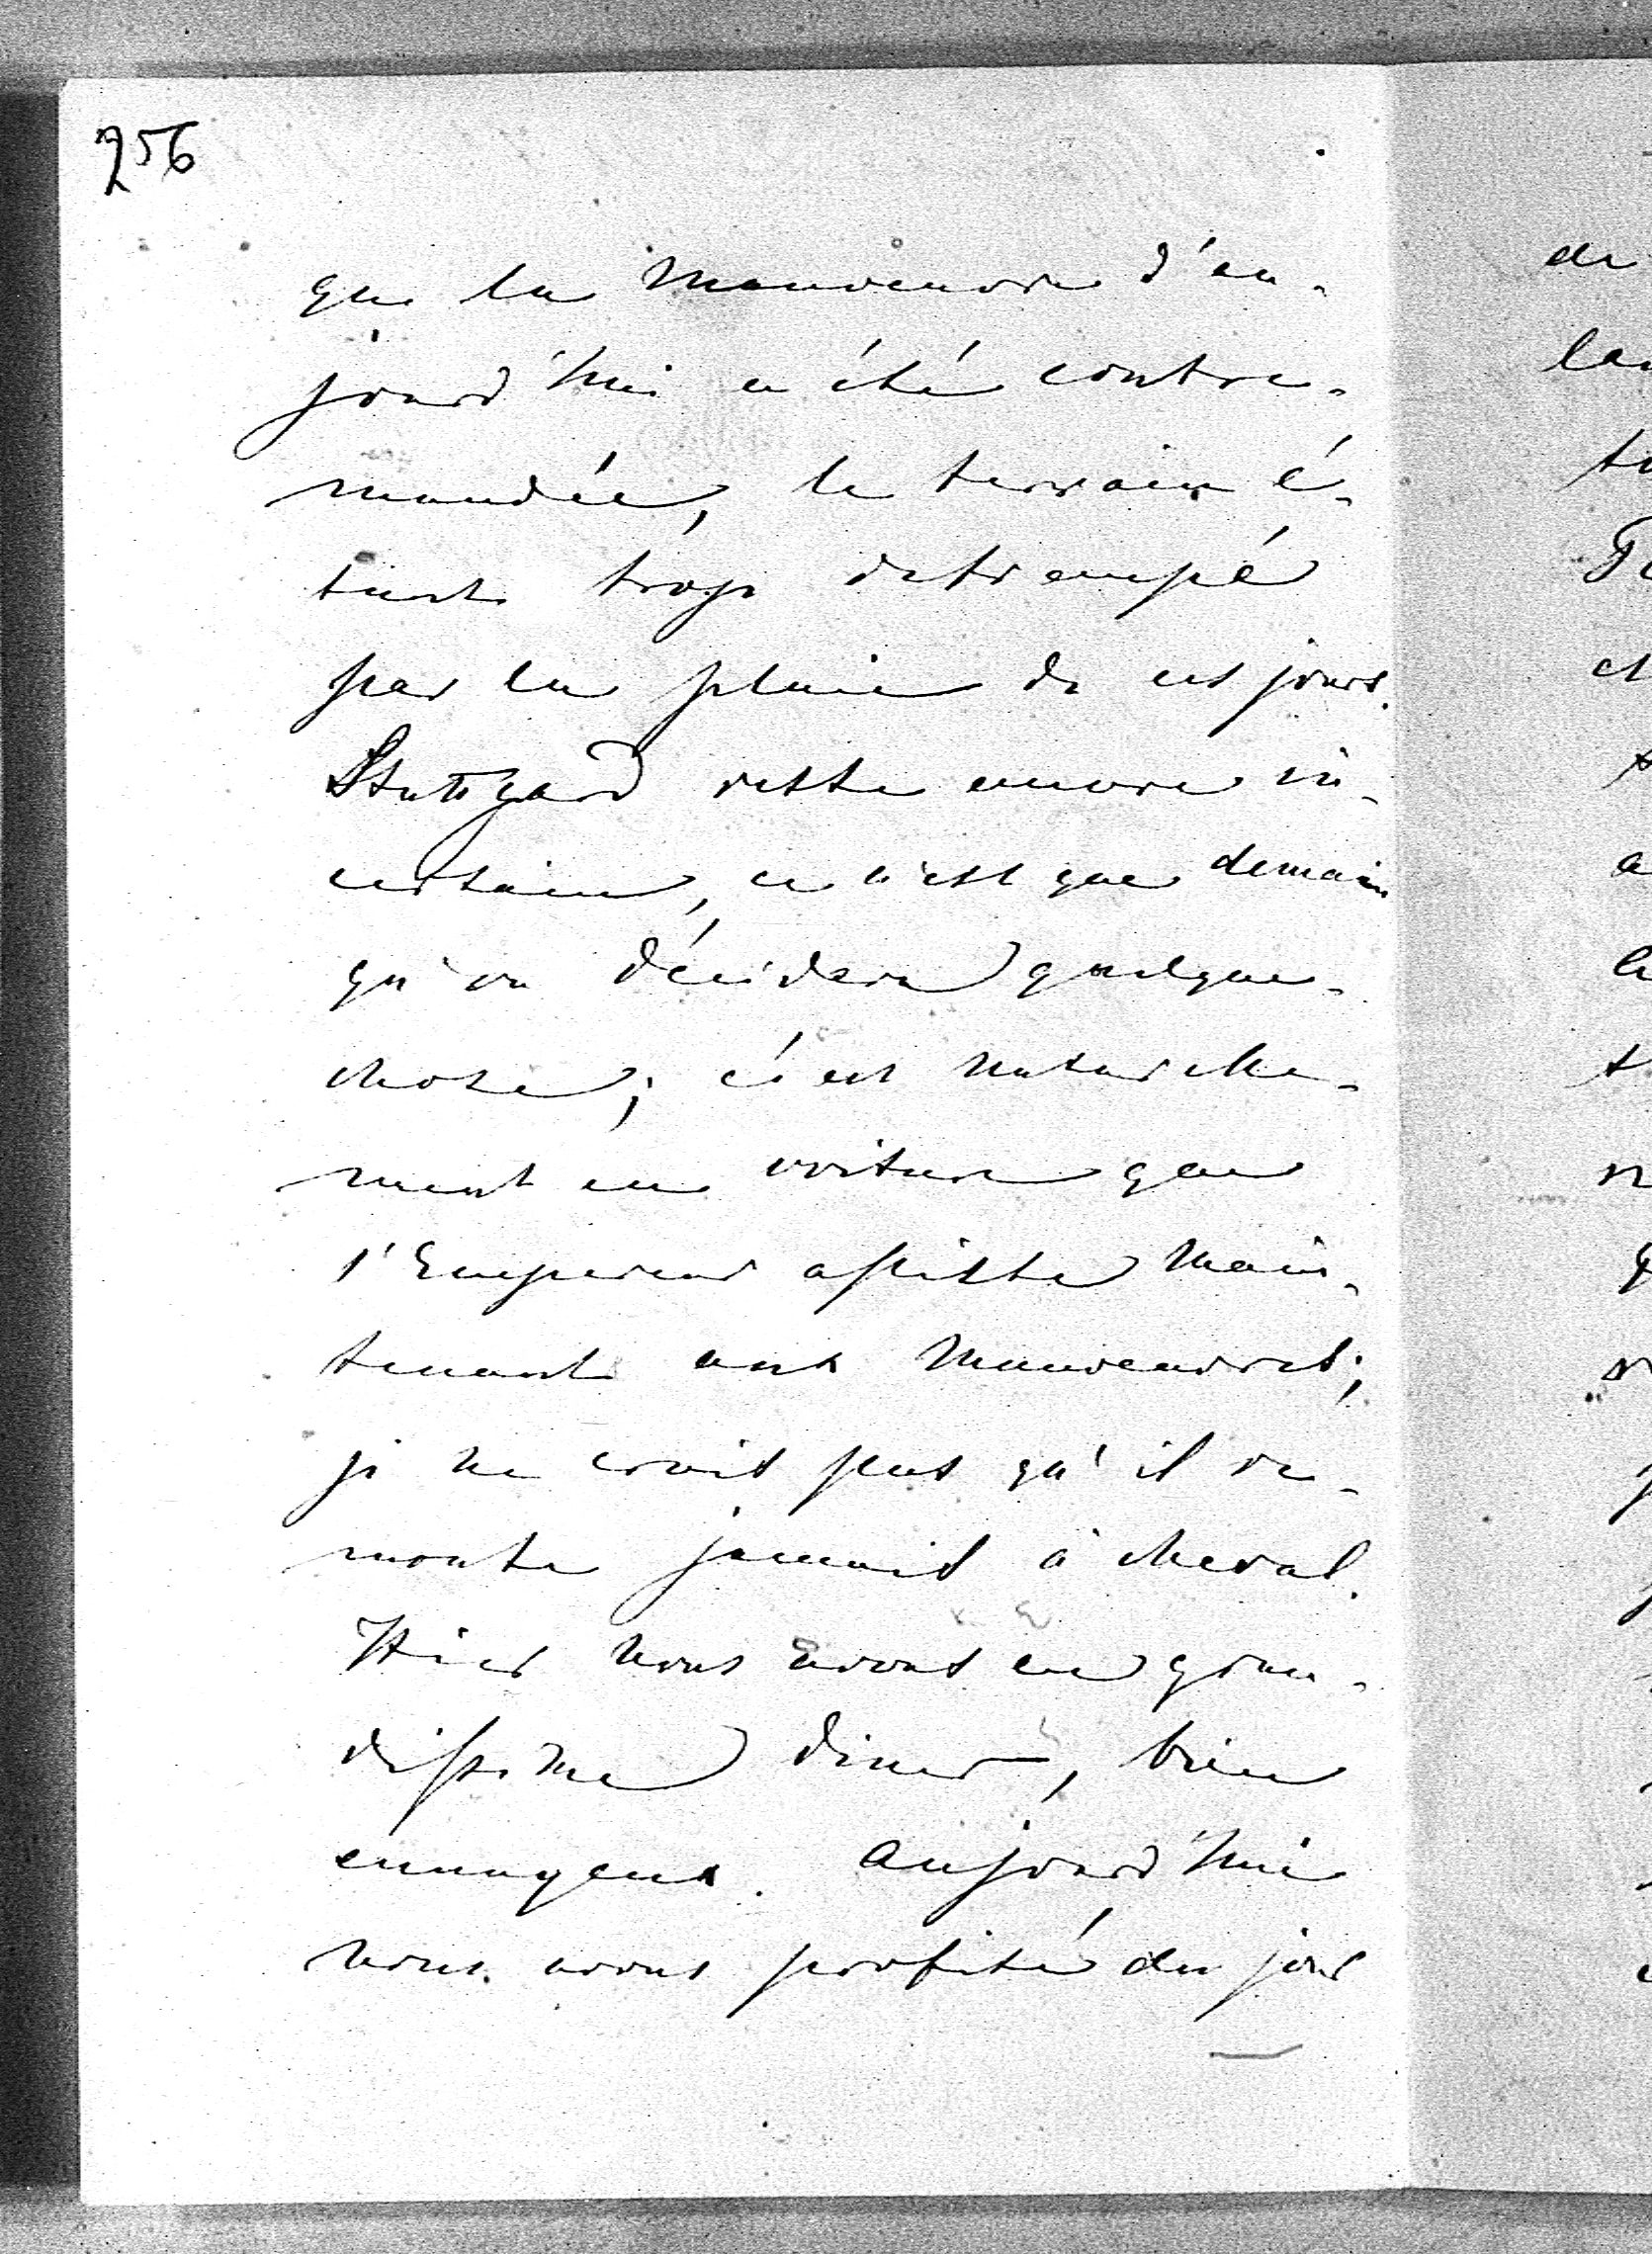 256
que la manoeuvre d'au-
jourd'hui a été contre-
mandée, le terrain é-
tant trop detrempé
par la pluie de ces jours.
Stuttgard reste encore in-
certain, ce n'est que demain
qu'on décidera quelque-
chose; c'est naturelle-
ment en voiture que
l'Empereur assiste main-
tenant aux manoeuvres;
je ne crois pas qu'il re-
monte jamais à cheval.
Hier nous avons eu gran-
dissime diner, bien
ennuyeux. Aujourd'hui
nous avons profité du jour